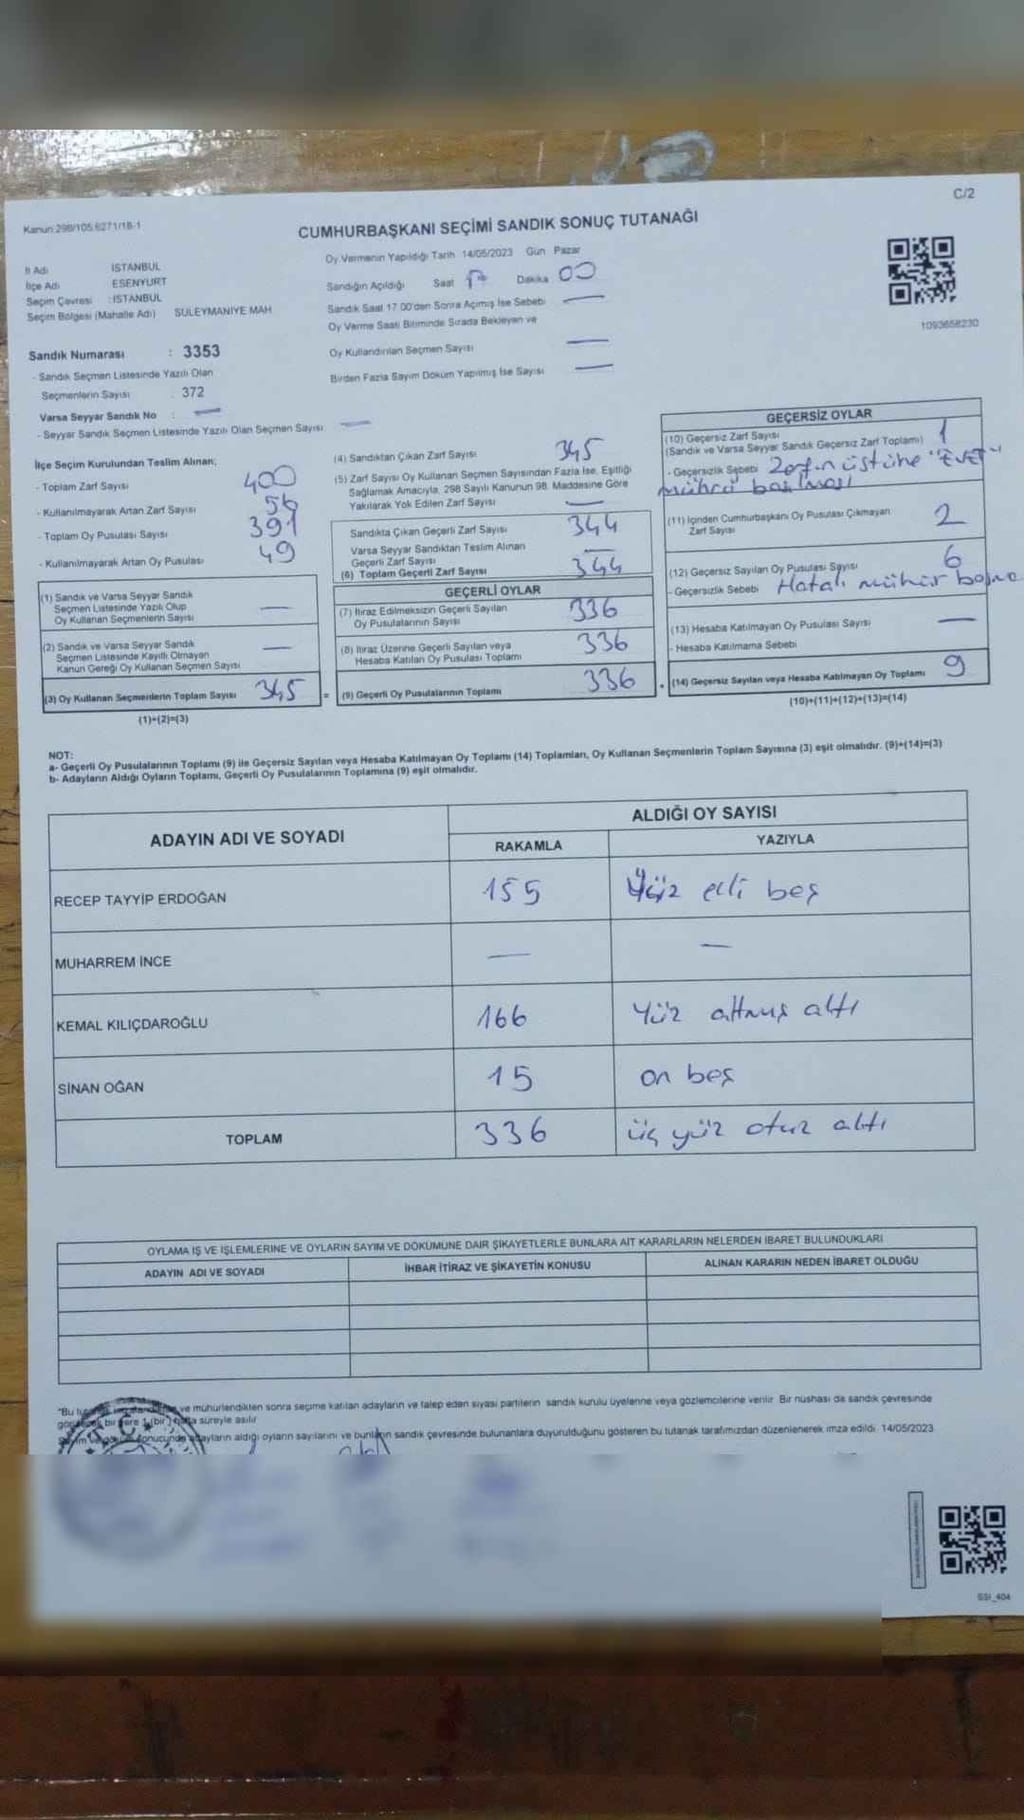 C/2
Kanun:298/105.6271/18-1
CUMHURBAŞKANI SEÇİMİ SANDIK SONUÇ TUTANAĞI
İl Adı : İSTANBUL
İlçe Adı : ESENYURT
Seçim Çevresi : İSTANBUL
Seçim Bölgesi (Mahalle Adı) SÜLEYMANİYE MAH
Oy Vermenin Yapıldığı Tarih 14/05/2023 Gün Pazar
Sandığın Açıldığı Saat 17 Dakika 00
Sandık Saat 17.00'den Sonra Açılmış İse Sebebi —
Oy Verme Saati Bitiminde Sırada Bekleyen ve
Oy Kullandırılan Seçmen Sayısı —
Birden Fazla Sayım Döküm Yapılmış İse Sayısı —
1093658230
Sandık Numarası : 3353
- Sandık Seçmen Listesinde Yazılı Olan
Seçmenlerin Sayısı : 372
Varsa Seyyar Sandık No : —
- Seyyar Sandık Seçmen Listesinde Yazılı Olan Seçmen Sayısı —
İlçe Seçim Kurulundan Teslim Alınan;
- Toplam Zarf Sayısı 400
- Kullanılmayarak Artan Zarf Sayısı
- Toplam Oy Pusulası Sayısı 391
- Kullanılmayarak Artan Oy Pusulası 49
(1) Sandık ve Varsa Seyyar Sandık
Seçmen Listesinde Yazılı Olup
Oy Kullanan Seçmenlerin Sayısı —
(2) Sandık ve Varsa Seyyar Sandık
Seçmen Listesinde Kayıtlı Olmayan
Kanun Gereği Oy Kullanan Seçmen Sayısı —
(3) Oy Kullanan Seçmenlerin Toplam Sayısı 345 =
(1)+(2)=(3)
(4) Sandıktan Çıkan Zarf Sayısı 345
(5) Zarf Sayısı Oy Kullanan Seçmen Sayısından Fazla İse, Eşitliği
Sağlamak Amacıyla, 298 Sayılı Kanunun 98. Maddesine Göre
Yakılarak Yok Edilen Zarf Sayısı —
Sandıkta Çıkan Geçerli Zarf Sayısı 344
Varsa Seyyar Sandıktan Teslim Alınan
Geçerli Zarf Sayısı —
(6) Toplam Geçerli Zarf Sayısı 344
GEÇERLİ OYLAR
(7) İtiraz Edilmeksizin Geçerli Sayılan
Oy Pusulalarının Sayısı 336
(8) İtiraz Üzerine Geçerli Sayılan veya
Hesaba Katılan Oy Pusulası Toplamı 336
(9) Geçerli Oy Pusulalarının Toplamı 336 +
GEÇERSİZ OYLAR
(10) Geçersiz Zarf Sayısı
(Sandık ve Varsa Seyyar Sandık Geçersiz Zarf Toplamı) 1
- Geçersizlik Sebebi Zarfın üstüne "EVET"
mührü basılması
(11) İçinden Cumhurbaşkanı Oy Pusulası Çıkmayan
Zarf Sayısı 2
(12) Geçersiz Sayılan Oy Pusulası Sayısı 6
- Geçersizlik Sebebi Hatalı mühür basma
(13) Hesaba Katılmayan Oy Pusulası Sayısı —
- Hesaba Katılmama Sebebi
(14) Geçersiz Sayılan veya Hesaba Katılmayan Oy Toplamı 9
(10)+(11)+(12)+(13)=(14)
NOT:
a- Geçerli Oy Pusulalarının Toplamı (9) ile Geçersiz Sayılan veya Hesaba Katılmayan Oy Toplamı (14) Toplamları, Oy Kullanan Seçmenlerin Toplam Sayısına (3) eşit olmalıdır. (9)+(14)=(3)
b- Adayların Aldığı Oyların Toplamı, Geçerli Oy Pusulalarının Toplamına (9) eşit olmalıdır.
ADAYIN ADI VE SOYADI ALDIĞI OY SAYISI
RAKAMLA YAZIYLA
RECEP TAYYİP ERDOĞAN 155 Yüz elli beş
MUHARREM İNCE — —
KEMAL KILIÇDAROĞLU 166 Yüz altmış altı
SİNAN OĞAN 15 on beş
TOPLAM 336 üç yüz otuz altı
OYLAMA İŞ VE İŞLEMLERİNE VE OYLARIN SAYIM VE DÖKÜMÜNE DAİR ŞİKAYETLERLE BUNLARA AİT KARARLARIN NELERDEN İBARET BULUNDUKLARI
ADAYIN ADI VE SOYADI İHBAR İTİRAZ VE ŞİKAYETİN KONUSU ALINAN KARARIN NEDEN İBARET OLDUĞU
"Bu ve mühürlendikten sonra seçime katılan adayların ve talep eden siyasi partilerin sandık kurulu üyelerine veya gözlemcilerine verilir. Bir nüshası da sandık çevresinde
bir yere 1 (bir) hafta süreyle asılır
adayların aldığı oyların sayılarını ve bunların sandık çevresinde bulunanlara duyurulduğunu gösteren bu tutanak tarafımızdan düzenlenerek imza edildi. 14/05/2023
SSI_404